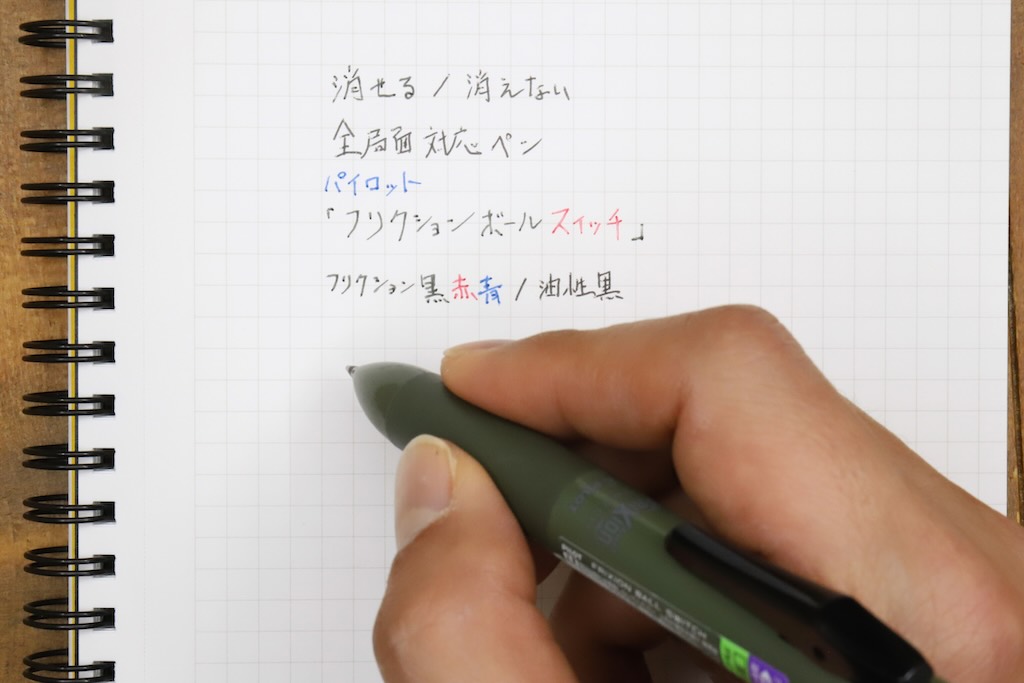 消せる / 消えない
全局面対応ペン
パイロット
「フリクションボールスイッチ」
フリクション黒赤青 / 油性黒
FRIXION BALL SWITCH